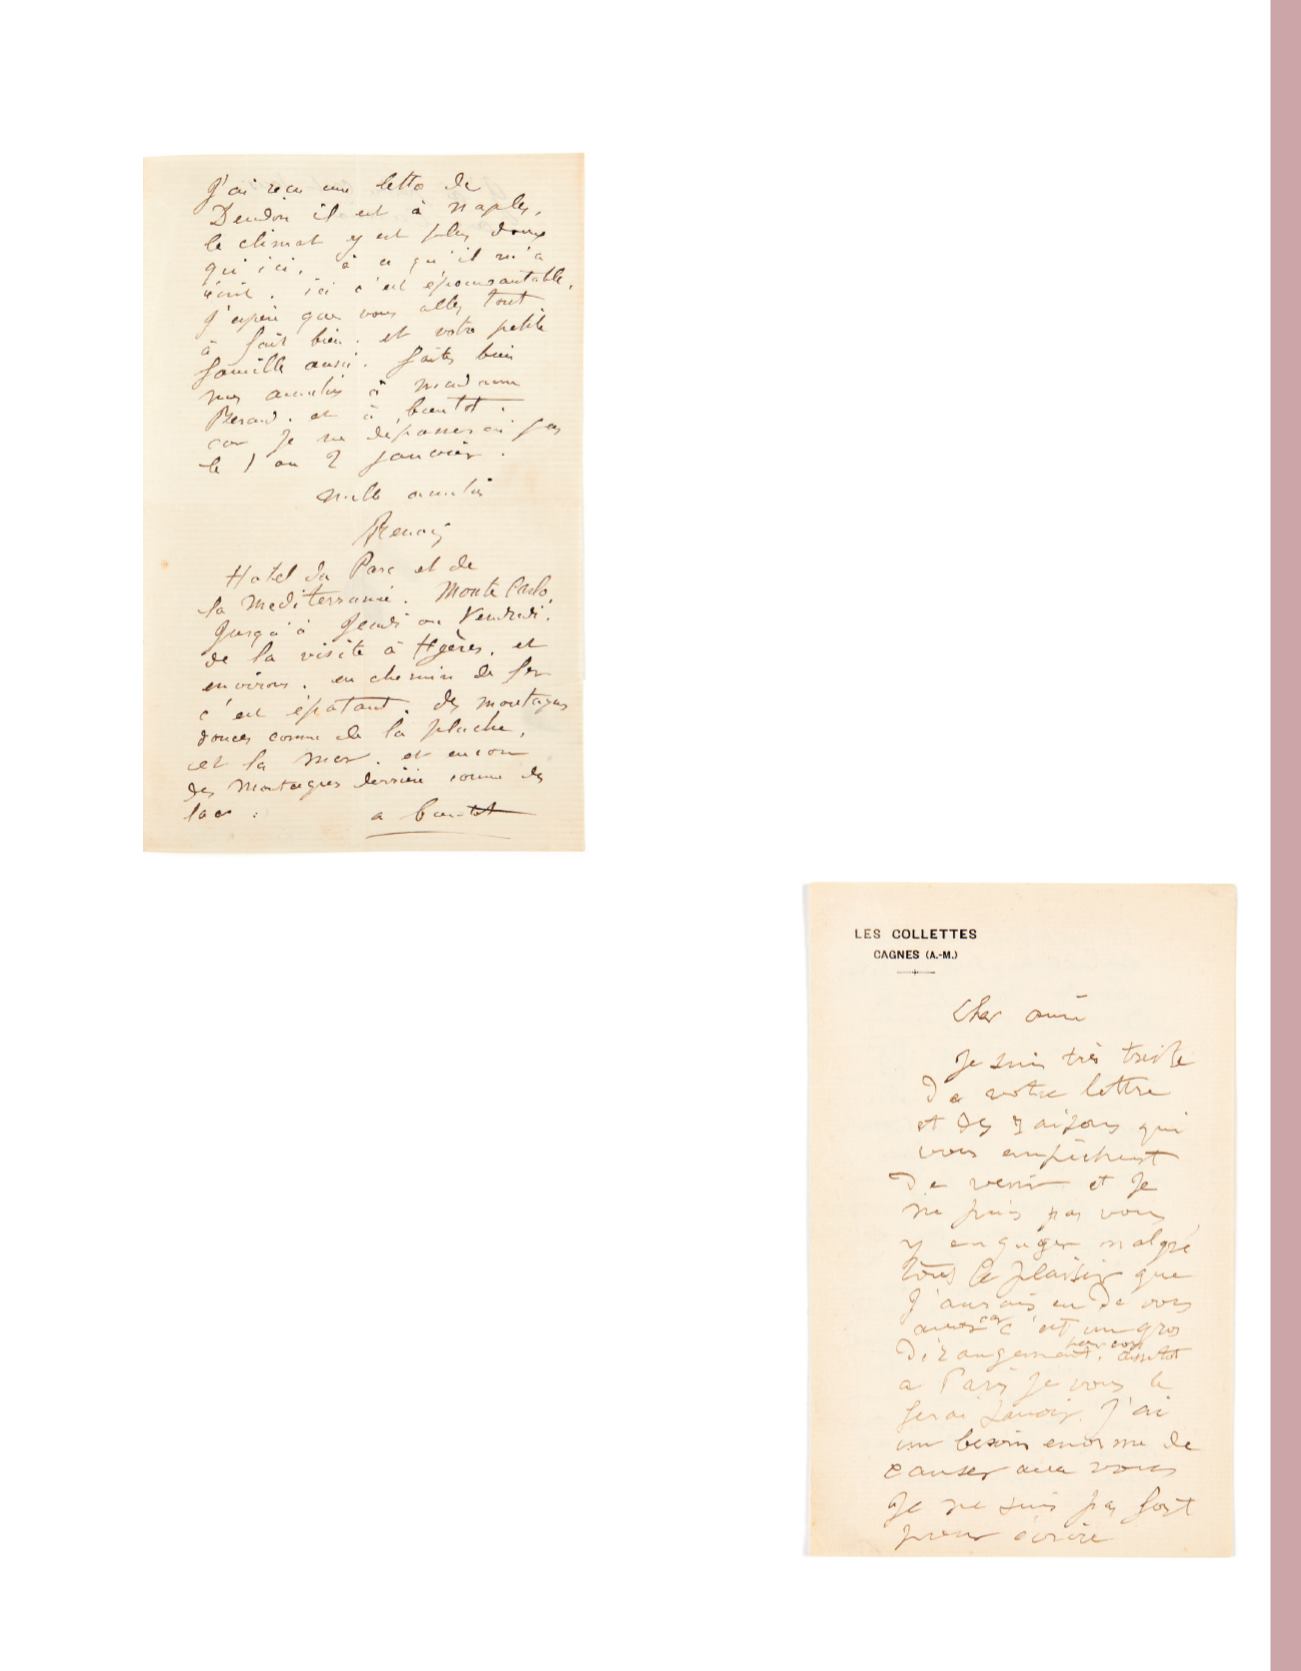 J'ai reçu une lettre de
Deudon il est à Naples,
le climat y est plus doux
qu'ici, à ce qu'il m'a
écrit. ici c'est épouvantable.
J'espère que vous allez tout
à fait bien. et votre petite
famille aussi. faites bien
mes amitiés à madame
Berard. et à bientot.
car je ne dépasserai pas
le 1 ou 2 janvier.
mille amitiés
Renoir
Hotel du Parc et de
la mediterranée. Monte Carlo,
Jusqu'à Jeudi ou Vendredi.
de la visite à Hyères. et
environs. en chemin de fer
c'est épatant. des montagnes
douces comme de la pluche,
et la mer. et encore
des montagnes derrière comme des
lacs.
a bientot
LES COLLETTES
CAGNES (A.-M.)
Cher ami
Je suis très triste
De votre lettre
et des raisons qui
vous empêchent
De venir et je
ne puis pas vous
y engager malgré
tous le plaisir que
J'aurais eu De vous
avoir car c'est un gros
Dérangement. pour vous aussitot
a Paris je vous le
ferai savoir. J'ai
un besoin enorme de
causer avec vous
Je ne suis pas fort
pour écrire